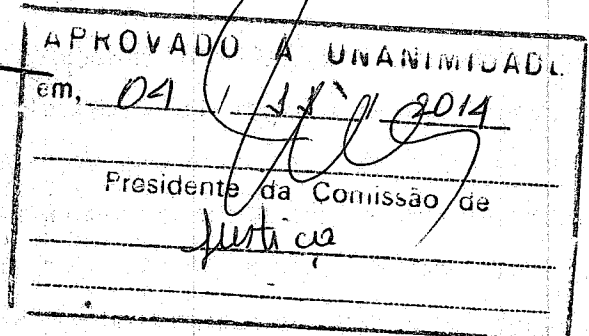 APROVADO À UNANIMIDADE
em, 04 / 11 / 2014
Presidente da Comissão de
Justiça